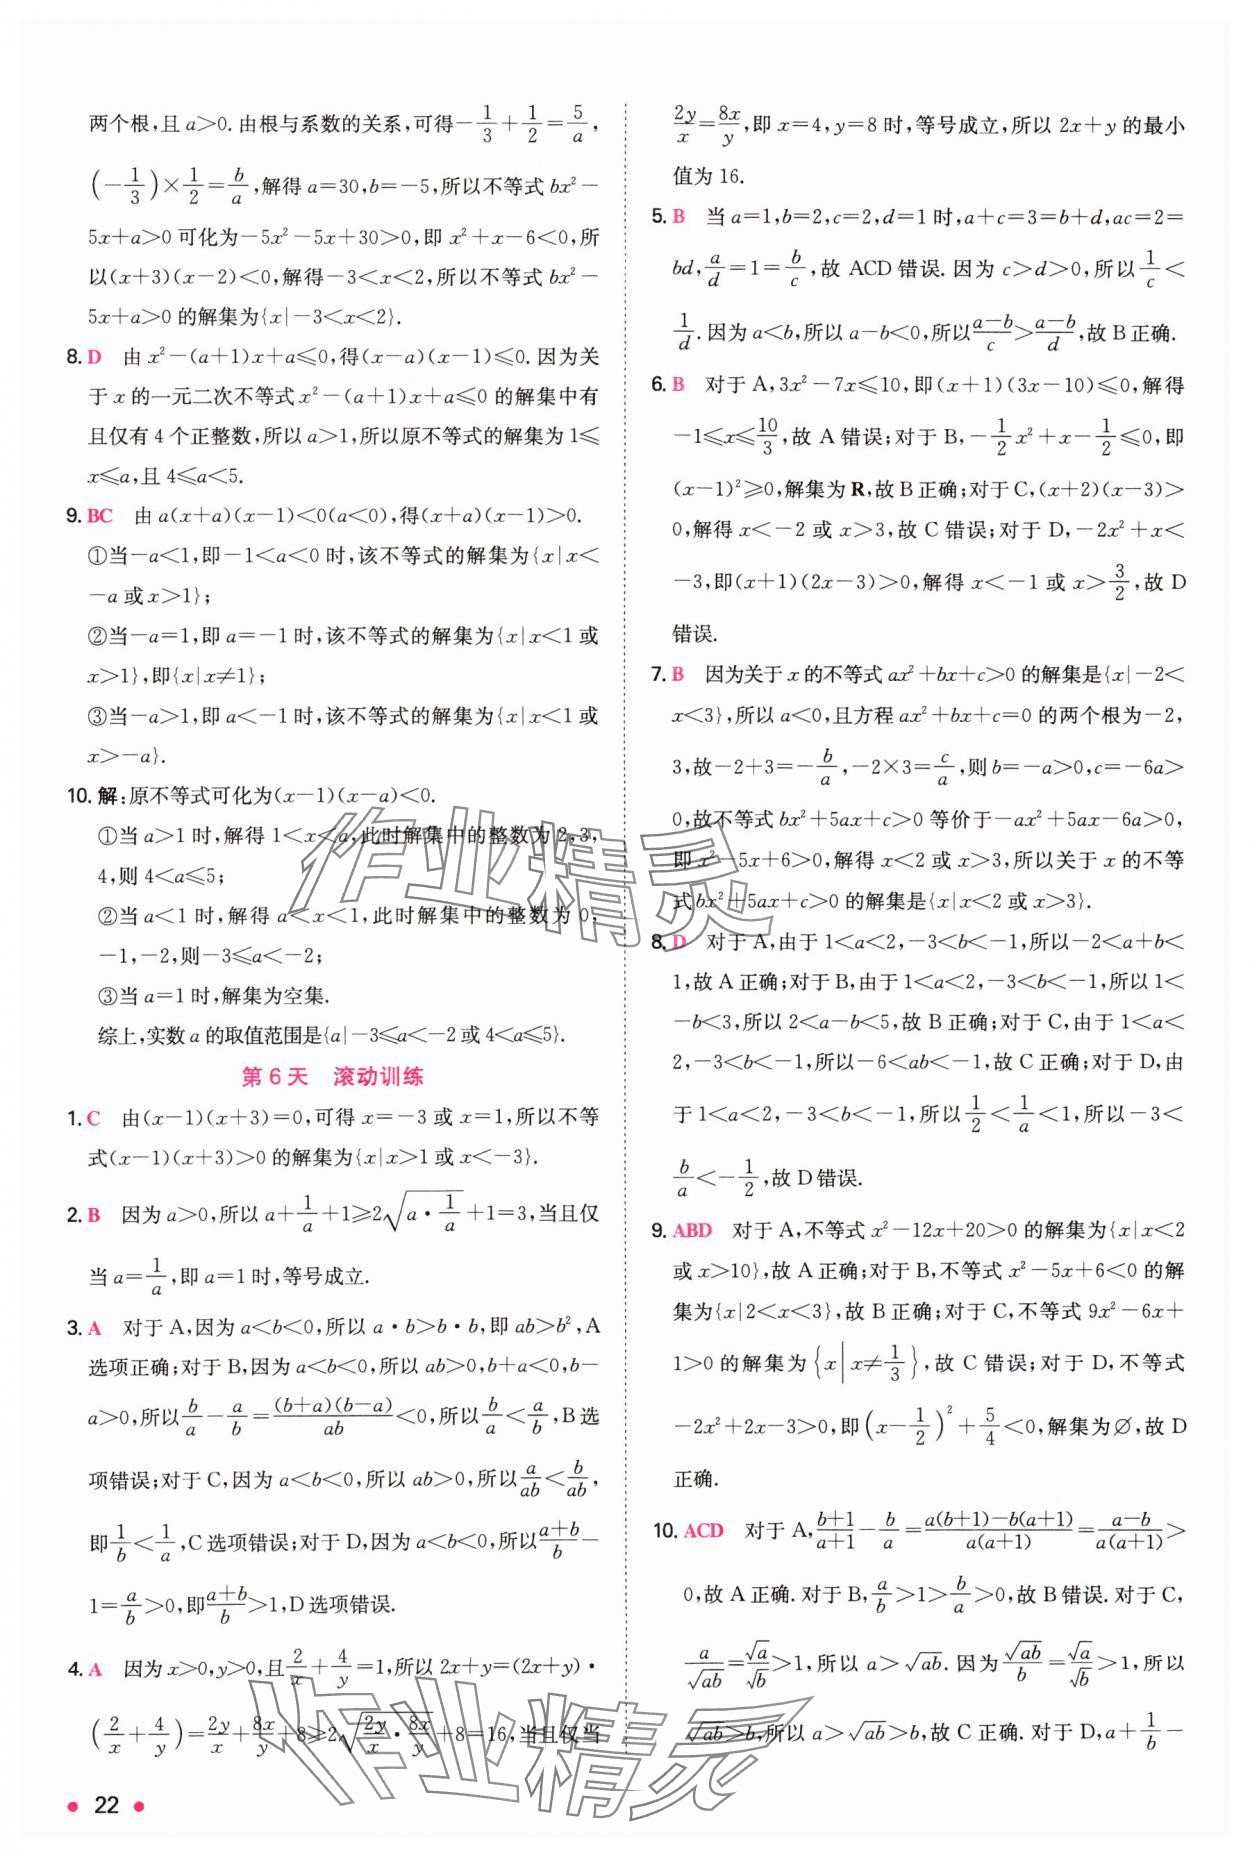 两个根,且 a>0. 由根与系数的关系,可得-1/3+1/2=5/a,
(-1/3)×1/2=b/a,解得 a=30,b=-5,所以不等式 bx²-
5x+a>0 可化为-5x²-5x+30>0,即 x²+x-6<0,所
以(x+3)(x-2)<0,解得-3<x<2,所以不等式 bx²-
5x+a>0 的解集为{x|-3<x<2}.
8. D 由 x²-(a+1)x+a≤0,得(x-a)(x-1)≤0. 因为关
于 x 的一元二次不等式 x²-(a+1)x+a≤0 的解集中有
且仅有 4 个正整数,所以 a>1,所以原不等式的解集为 1≤
x≤a,且 4≤a<5.
9. BC 由 a(x+a)(x-1)<0(a<0),得(x+a)(x-1)>0.
①当-a<1,即-1<a<0 时,该不等式的解集为{x|x<
-a 或 x>1};
②当-a=1,即 a=-1 时,该不等式的解集为{x|x<1 或
x>1},即{x|x≠1};
③当-a>1,即 a<-1 时,该不等式的解集为{x|x<1 或
x>-a}.
10. 解:原不等式可化为(x-1)(x-a)<0.
①当 a>1 时,解得 1<x<a,此时解集中的整数为 2,3,
4,则 4<a≤5;
②当 a<1 时,解得 a<x<1,此时解集中的整数为 0,
-1,-2,则-3≤a<-2;
③当 a=1 时,解集为空集.
综上,实数 a 的取值范围是{a|-3≤a<-2 或 4<a≤5}.
第 6 天 滚动训练
1. C 由(x-1)(x+3)=0,可得 x=-3 或 x=1,所以不等
式(x-1)(x+3)>0 的解集为{x|x>1 或 x<-3}.
2. B 因为 a>0,所以 a+1/a+1≥2√(a·1/a)+1=3,当且仅
当 a=1/a,即 a=1 时,等号成立.
3. A 对于 A,因为 a<b<0,所以 a·b>b·b,即 ab>b²,A
选项正确;对于 B,因为 a<b<0,所以 ab>0,b+a<0,b-
a>0,所以b/a-a/b=(b+a)(b-a)/ab<0,所以b/a<a/b,B 选
项错误;对于 C,因为 a<b<0,所以 ab>0,所以a/ab<b/ab,
即1/b<1/a,C 选项错误;对于 D,因为 a<b<0,所以(a+b)/b-
1=a/b>0,即(a+b)/b>1,D 选项错误.
4. A 因为 x>0,y>0,且2/x+4/y=1,所以 2x+y=(2x+y)·
(2/x+4/y)=2y/x+8x/y+8≥2√(2y/x·8x/y)+8=16,当且仅当
2y/x=8x/y,即 x=4,y=8 时,等号成立,所以 2x+y 的最小
值为 16.
5. B 当 a=1,b=2,c=2,d=1 时,a+c=3=b+d,ac=2=
bd,a/d=1=b/c,故 ACD 错误. 因为 c>d>0,所以1/c<
1/d. 因为 a<b,所以 a-b<0,所以(a-b)/c>(a-b)/d,故 B 正确.
6. B 对于 A,3x²-7x≤10,即(x+1)(3x-10)≤0,解得
-1≤x≤10/3,故 A 错误;对于 B,-1/2x²+x-1/2≤0,即
(x-1)²≥0,解集为 R,故 B 正确;对于 C,(x+2)(x-3)>
0,解得 x<-2 或 x>3,故 C 错误;对于 D,-2x²+x<
-3,即(x+1)(2x-3)>0,解得 x<-1 或 x>3/2,故 D
错误.
7. B 因为关于 x 的不等式 ax²+bx+c>0 的解集是{x|-2<
x<3},所以 a<0,且方程 ax²+bx+c=0 的两个根为-2,
3,故-2+3=-b/a,-2×3=c/a,则 b=-a>0,c=-6a>
0,故不等式 bx²+5ax+c>0 等价于-ax²+5ax-6a>0,
即 x²-5x+6>0,解得 x<2 或 x>3,所以关于 x 的不等
式 bx²+5ax+c>0 的解集是{x|x<2 或 x>3}.
8. D 对于 A,由于 1<a<2,-3<b<-1,所以-2<a+b<
1,故 A 正确;对于 B,由于 1<a<2,-3<b<-1,所以 1<
-b<3,所以 2<a-b<5,故 B 正确;对于 C,由于 1<a<
2,-3<b<-1,所以-6<ab<-1,故 C 正确;对于 D,由
于 1<a<2,-3<b<-1,所以1/2<1/a<1,所以-3<
b/a<-1/2,故 D 错误.
9. ABD 对于 A,不等式 x²-12x+20>0 的解集为{x|x<2
或 x>10},故 A 正确;对于 B,不等式 x²-5x+6<0 的解
集为{x|2<x<3},故 B 正确;对于 C,不等式 9x²-6x+
1>0 的解集为{x|x≠1/3},故 C 错误;对于 D,不等式
-2x²+2x-3>0,即(x-1/2)²+5/4<0,解集为∅,故 D
正确.
10. ACD 对于 A,(b+1)/(a+1)-b/a=[a(b+1)-b(a+1)]/a(a+1)=(a-b)/a(a+1)>
0,故 A 正确. 对于 B,a/b>1>b/a>0,故 B 错误. 对于 C,
a/√ab=√a/√b>1,所以 a>√ab. 因为√ab/b=√a/√b>1,所以
√ab>b,所以 a>√ab>b,故 C 正确. 对于 D,a+1/b-
22
作业精灵
作业精灵